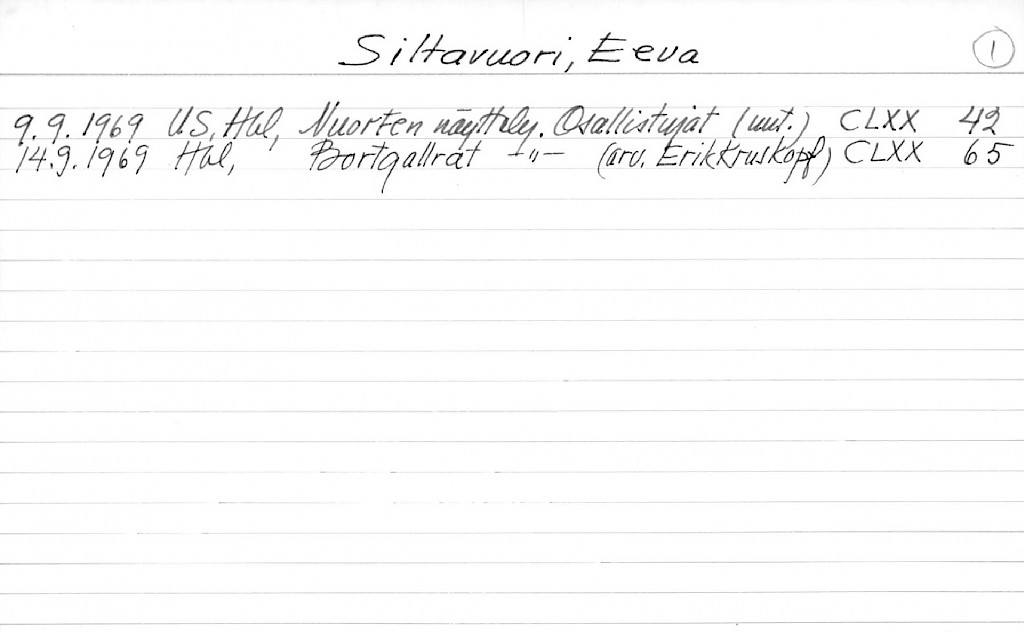 Siltavuori, Eeva 1
9.9.1969 US, Hbl, Nuorten näyttely. Osallistujat (uut.) CLXX 42
14.9.1969 Hbl, Bortgallrat -"- (arv. Erik Kruskopf) CLXX 65